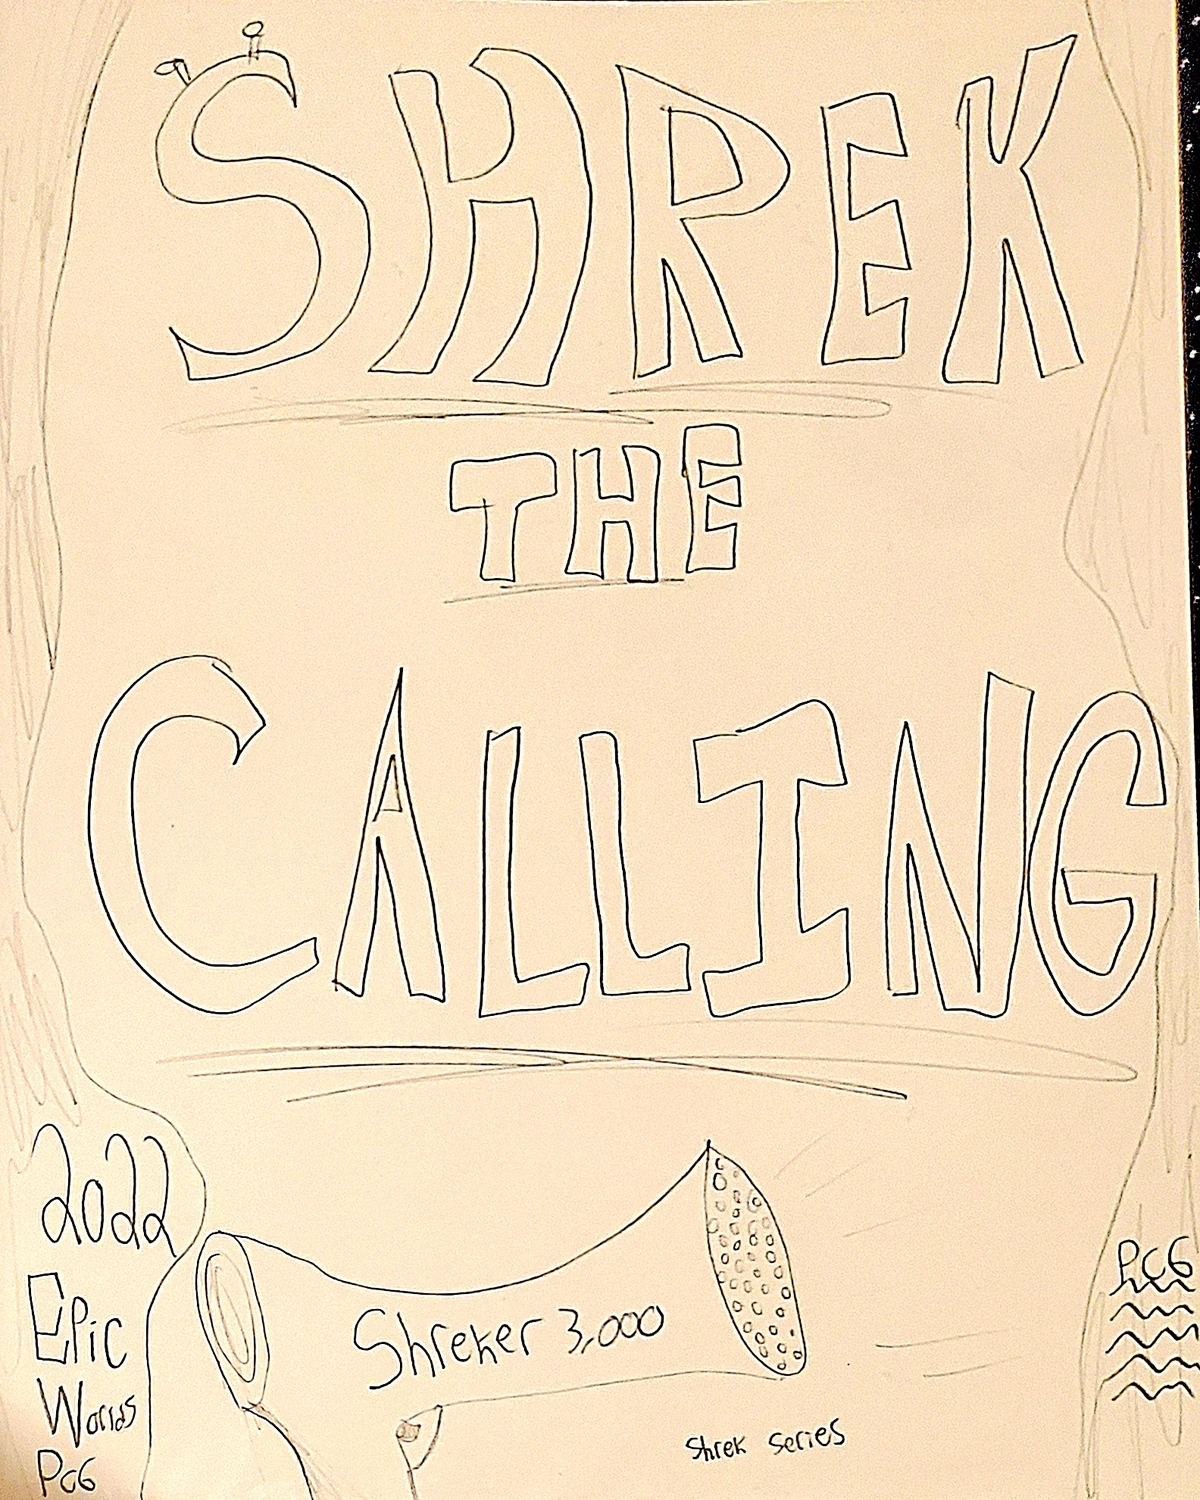 SHREK
THE
CALLING
2022
EPic
Worlds
PG6
Shreker 3,000
Shrek series
PG6